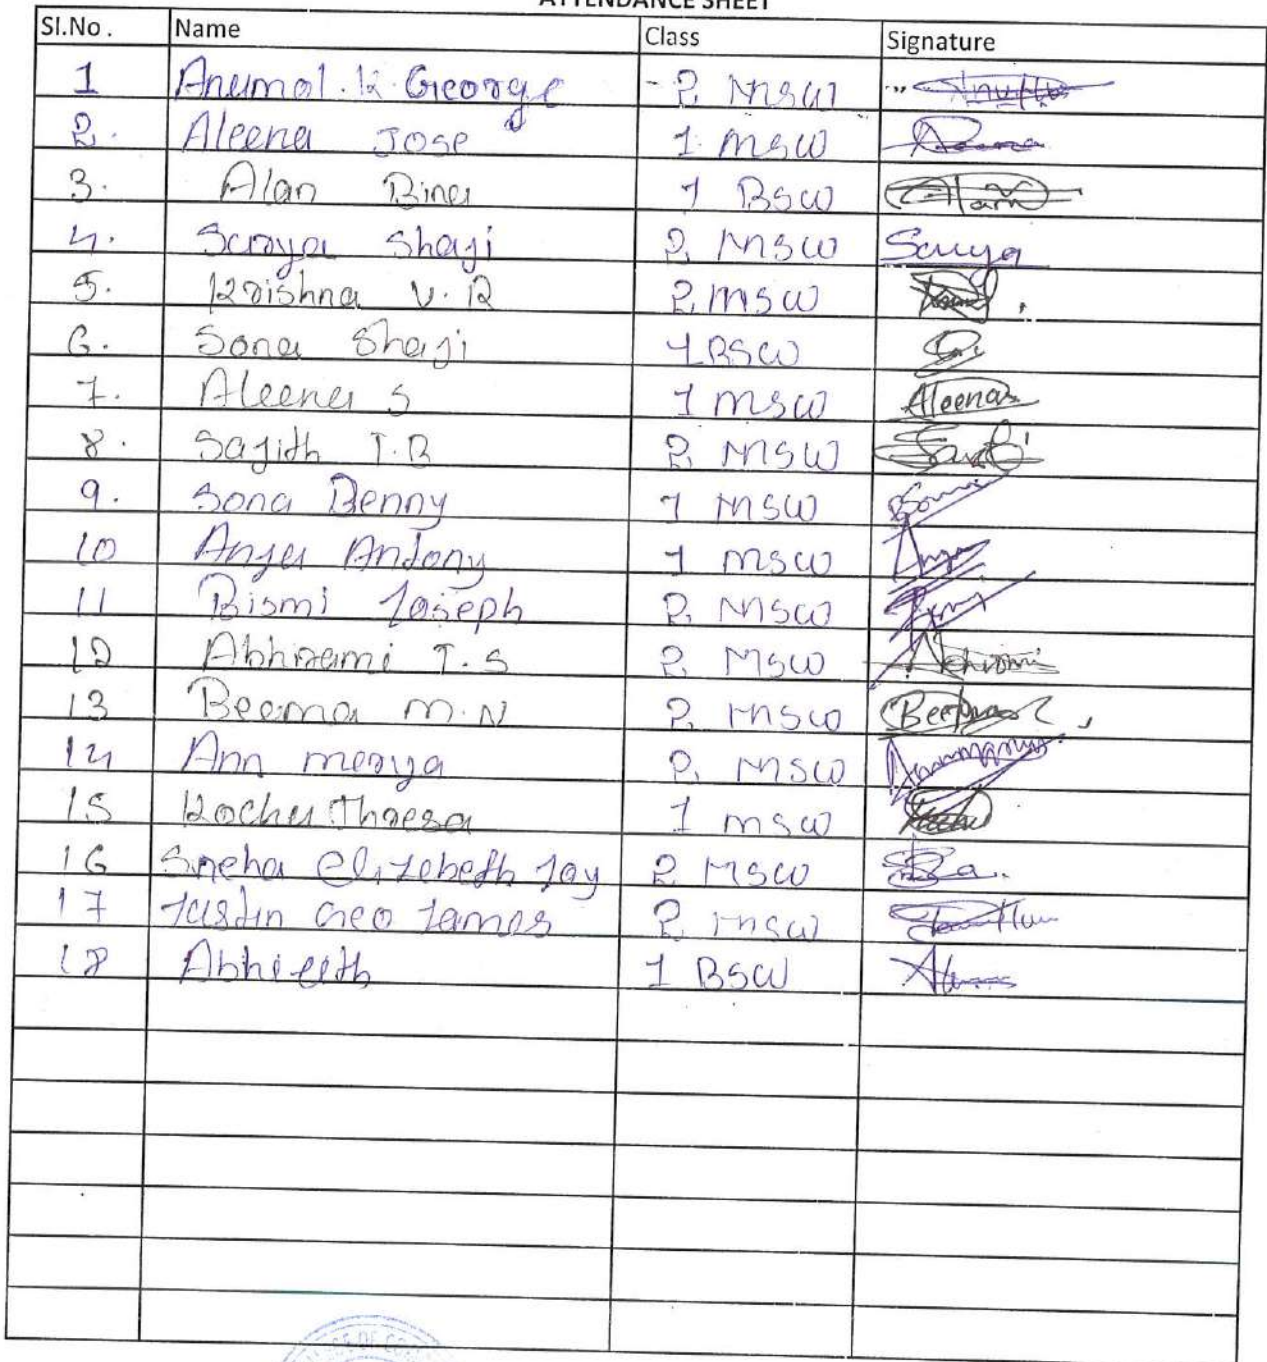 ATTENDANCE SHEET
Sl.No. Name Class Signature
1 Anumol. K. George 2 MSW
2. Aleena Jose 1 MSW
3. Alan Binu 1 BSW Alan
4. Saraya Shaji 2 MSW Saraya
5. Krishna V. R 2 MSW
6. Sona Shaji 1 BSW
7. Aleena S 1 MSW Aleenas
8. Sajith T. B 2 MSW
9. Sona Benny 1 MSW Sona
10 Anja Antony 1 MSW Anja
11 Bismi Joseph 2 MSW
12 Abhirami T. S 2 MSW Abhirami
13 Beema M. N 2 MSW
14 Ann merya 2 MSW Annmarya
15 Kochu Thresa 1 MSW
16 Sneha Elizebeth Joy 2 MSW
17 Justin Geo James 2 MSW
18 Abhijith 1 BSW